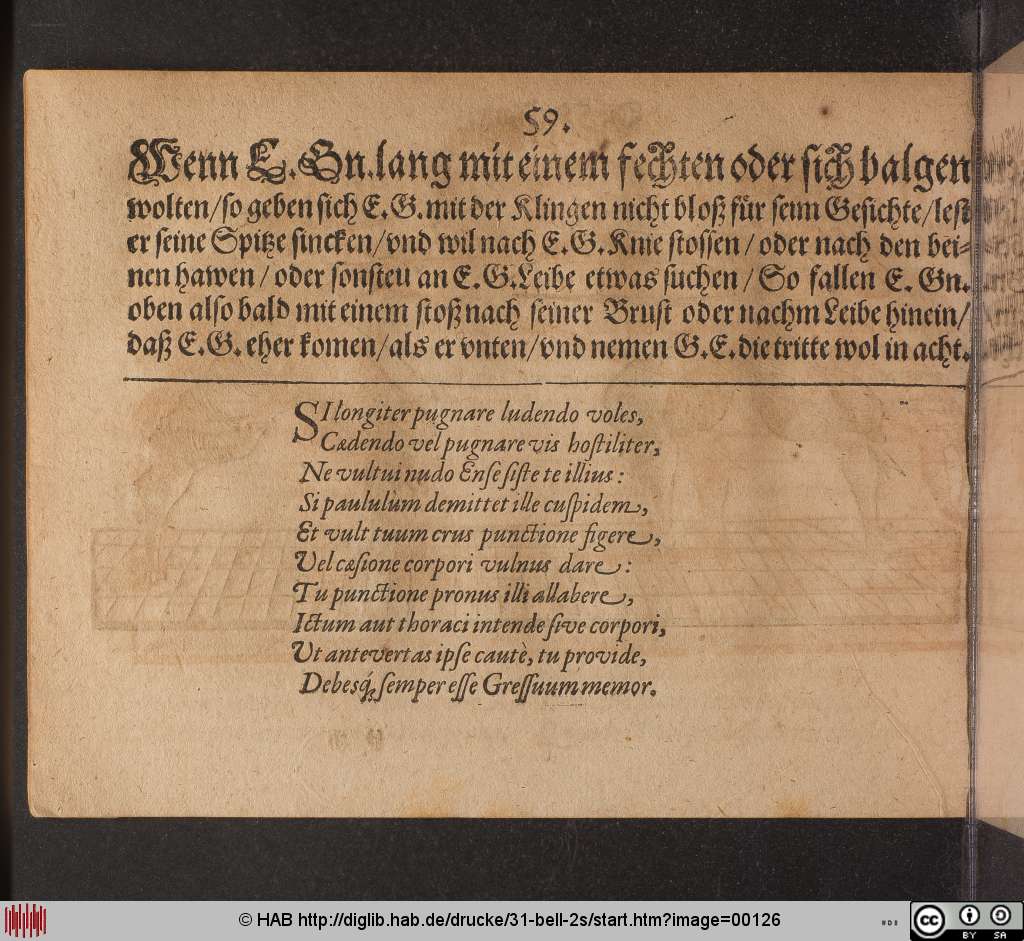 59.
Wenn E. Gn. lang mit einem fechten oder sich balgen
wolten/so geben sich E.G. mit der Klingen nicht bloß für senn Gesichte/lest
er seine Spitze sincken/vnd wil nach E.G. Knie stossen/oder nach den bei-
nen hawen/oder sonsteu an E.G. Leibe etwas suchen/So fallen E. Gn.
oben also bald mit einem stoß nach seiner Brust oder nachm Leibe hinein/
daß E.G. eher komen/als er vnten/vnd nemen G.E. die tritte wol in acht.
SI longiter pugnare ludendo voles,
Cædendo vel pugnare vis hostiliter,
Ne vultui nudo Ense siste te illius:
Si paululùm demittet ille cuspidem,
Et vult tuum crus punctione figere,
Vel cæsione corpori vulnus dare:
Tu punctione pronus illi allabere,
Ictum aut thoraci intende sive corpori,
Ut antevertas ipse cautè, tu provide,
Debesq́; semper esse Gressuum memor.
© HAB http://diglib.hab.de/drucke/31-bell-2s/start.htm?image=00126
cc BY SA